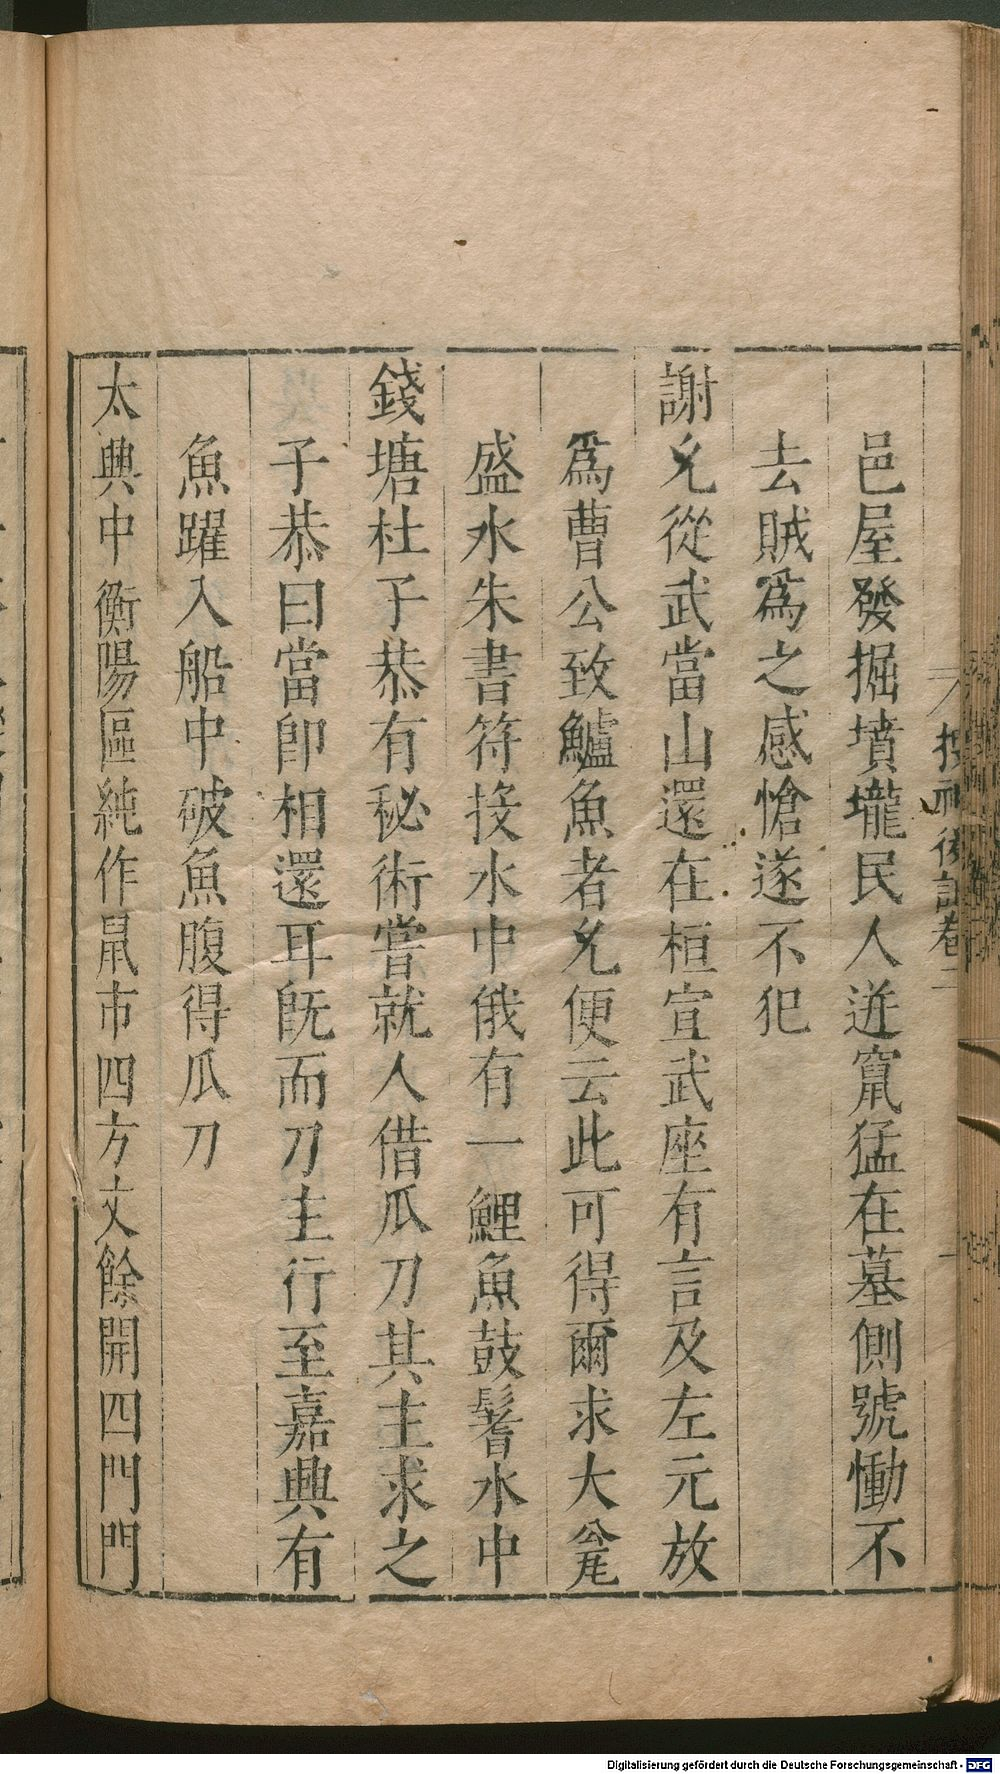 搜神後記卷二
邑屋發掘墳壠民人迸竄猛在墓側號慟不
去賊爲之感愴遂不犯
謝允從武當山還在桓宣武座有言及左元放
爲曹公致鱸魚者允便云此可得爾求大瓮
盛水朱書符投水中俄有一鯉魚鼓鬐水中
錢塘杜子恭有秘術嘗就人借瓜刀其主求之
子恭曰當卽相還耳旣而刀主行至嘉興有
魚躍入船中破魚腹得瓜刀
太興中衡陽區純作鼠市四方丈餘開四門門
Digitalisierung gefördert durch die Deutsche Forschungsgemeinschaft - DFG